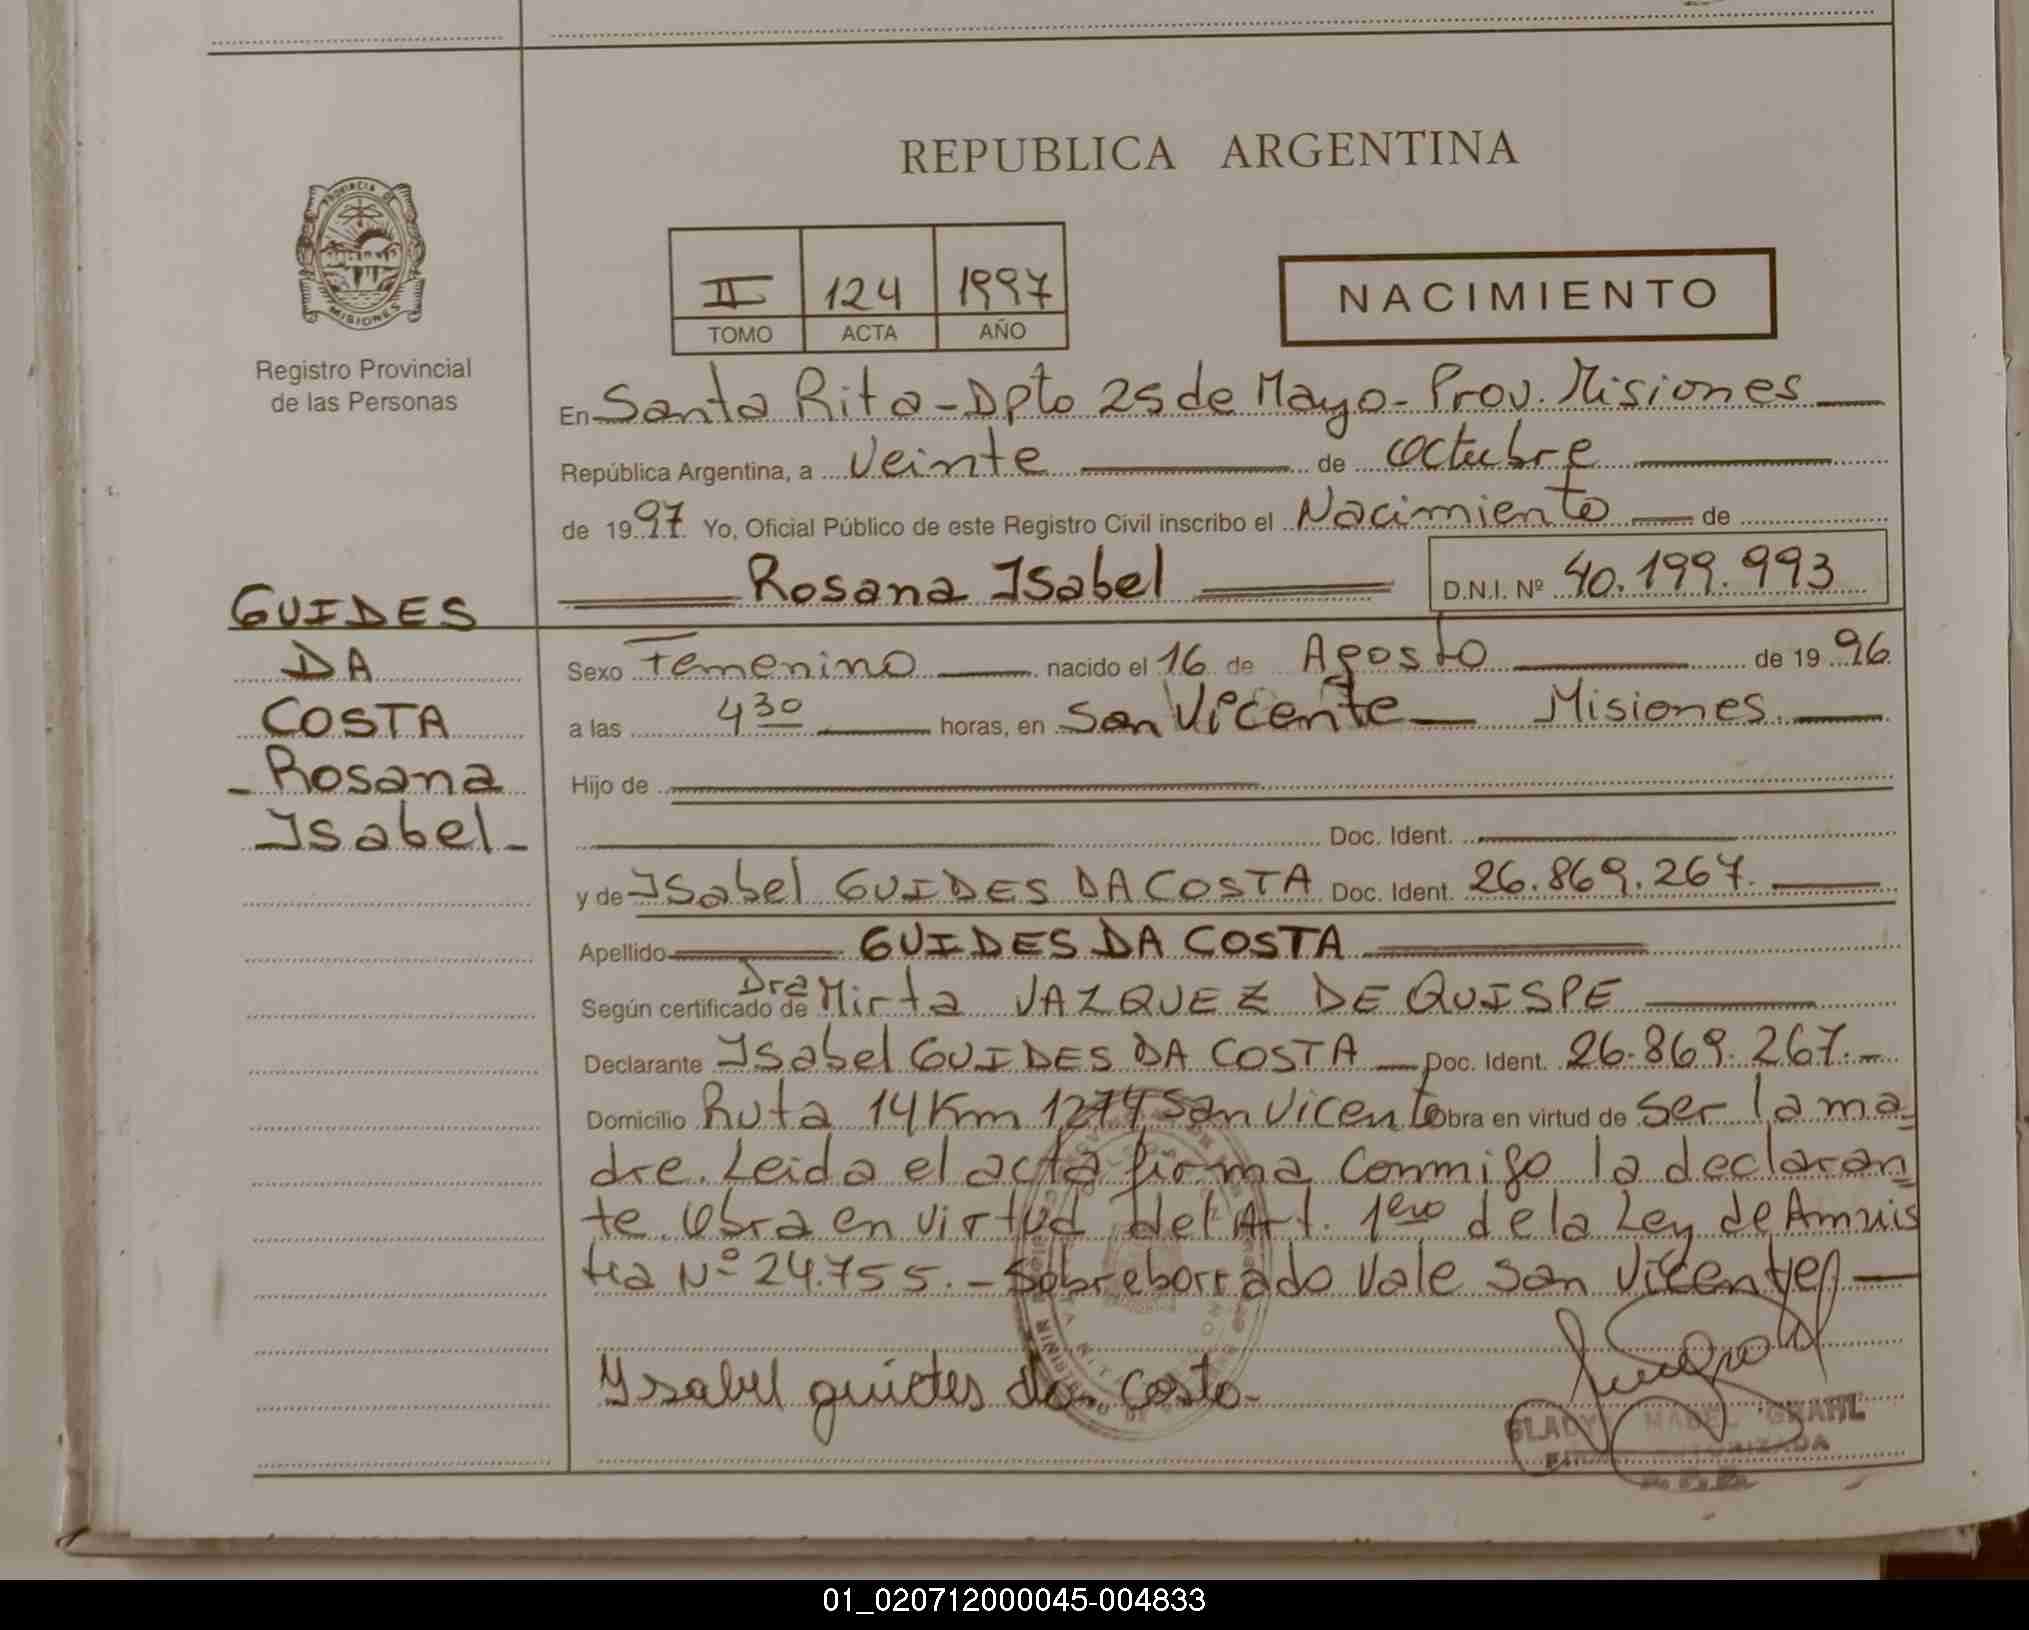 REPUBLICA ARGENTINA
PROVINCIA DE MISIONES
Registro Provincial
de las Personas
II 124 1997
TOMO ACTA AÑO
NACIMIENTO
En Santa Rita - Dpto 25 de Mayo - Prov. Misiones
República Argentina, a Veinte de Octubre
de 1997 Yo, Oficial Público de este Registro Civil inscribo el Nacimiento de
Rosana Isabel D.N.I. Nº 40.199.993
GUIDES
DA
COSTA
- Rosana
Isabel -
Sexo Femenino nacido el 16 de Agosto de 1996
a las 4 30 horas, en San Vicente - Misiones
Hijo de
Doc. Ident.
y de Isabel GUIDES DA COSTA Doc. Ident. 26.869.267.
Apellido GUIDES DA COSTA
Según certificado de Dra Mirta VAZQUEZ DE QUISPE
Declarante Isabel GUIDES DA COSTA - Doc. Ident. 26.869.267.-
Domicilio Ruta 14 Km 1274 San Vicente obra en virtud de ser la ma-
dre. Leida el acta firma conmigo la declaran
te. Obra en virtud del Art. 1ero de la Ley de Amnis
tia Nº 24.755. - Sobreborrado Vale San Vicente
Ysabel guides da costa-
GLADYS MABEL GRAHL
01_020712000045-004833